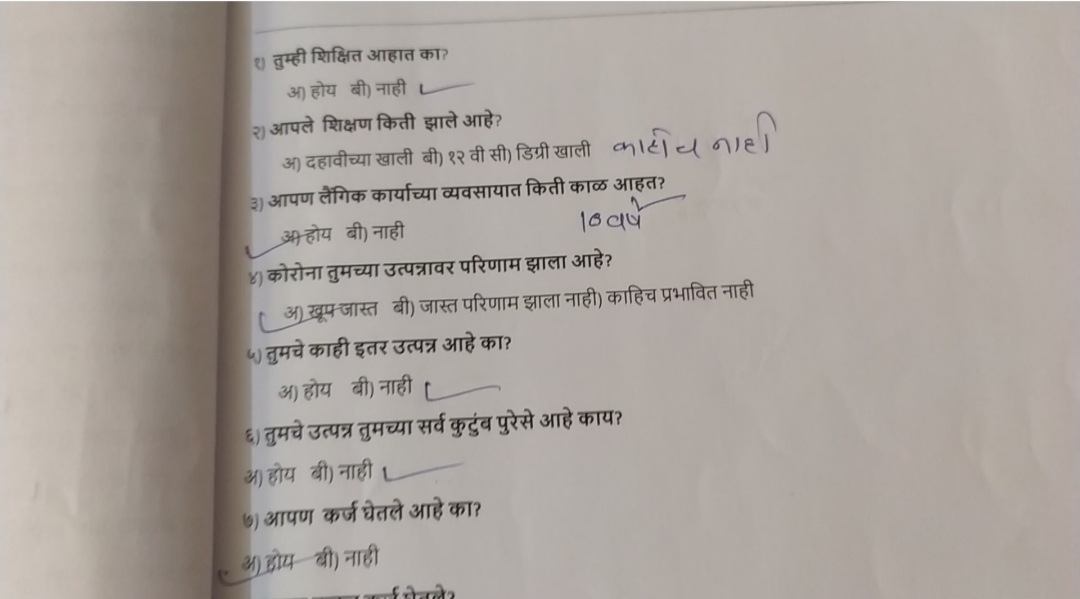 १) तुम्ही शिक्षित आहात का?
अ) होय बी) नाही
२) आपले शिक्षण किती झाले आहे?
अ) दहावीच्या खाली बी) १२ वी सी) डिग्री खाली काहीच नाही
३) आपण लैंगिक कार्याच्या व्यवसायात किती काळ आहत?
अ) होय बी) नाही 10 वर्षे
४) कोरोना तुमच्या उत्पन्नावर परिणाम झाला आहे?
अ) खूप जास्त बी) जास्त परिणाम झाला नाही) काहिच प्रभावित नाही
५) तुमचे काही इतर उत्पन्न आहे का?
अ) होय बी) नाही
६) तुमचे उत्पन्न तुमच्या सर्व कुटुंब पुरेसे आहे काय?
अ) होय बी) नाही
७) आपण कर्ज घेतले आहे का?
अ) होय बी) नाही